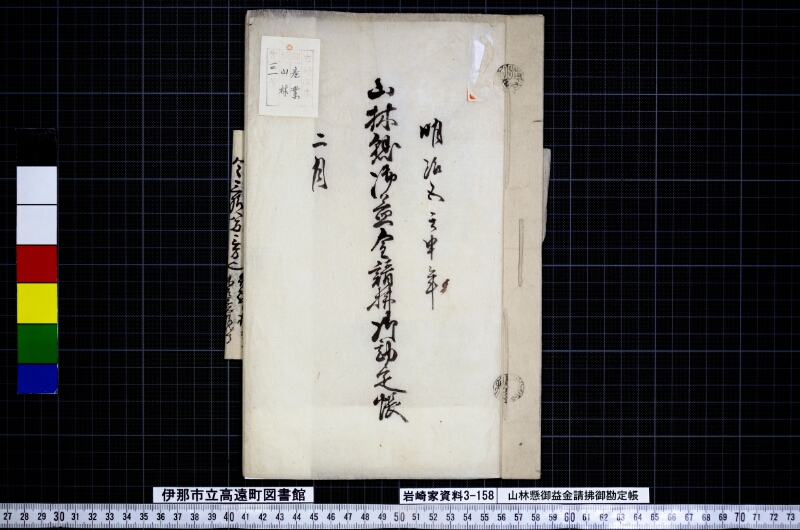 明治五壬申年
山林懸御益金請払御勘定帳
二月
産業
山林
三一
伊那市立高遠町図書館
岩崎家資料3-158
山林懸御益金請払御勘定帳
27 28 29 30 31 32 33 34 35 36 37 38 39 40 41 42 43 44 45 46 47 48 49 50 51 52 53 54 55 56 57 58 59 60 61 62 63 64 65 66 67 68 69 70 71 72 73